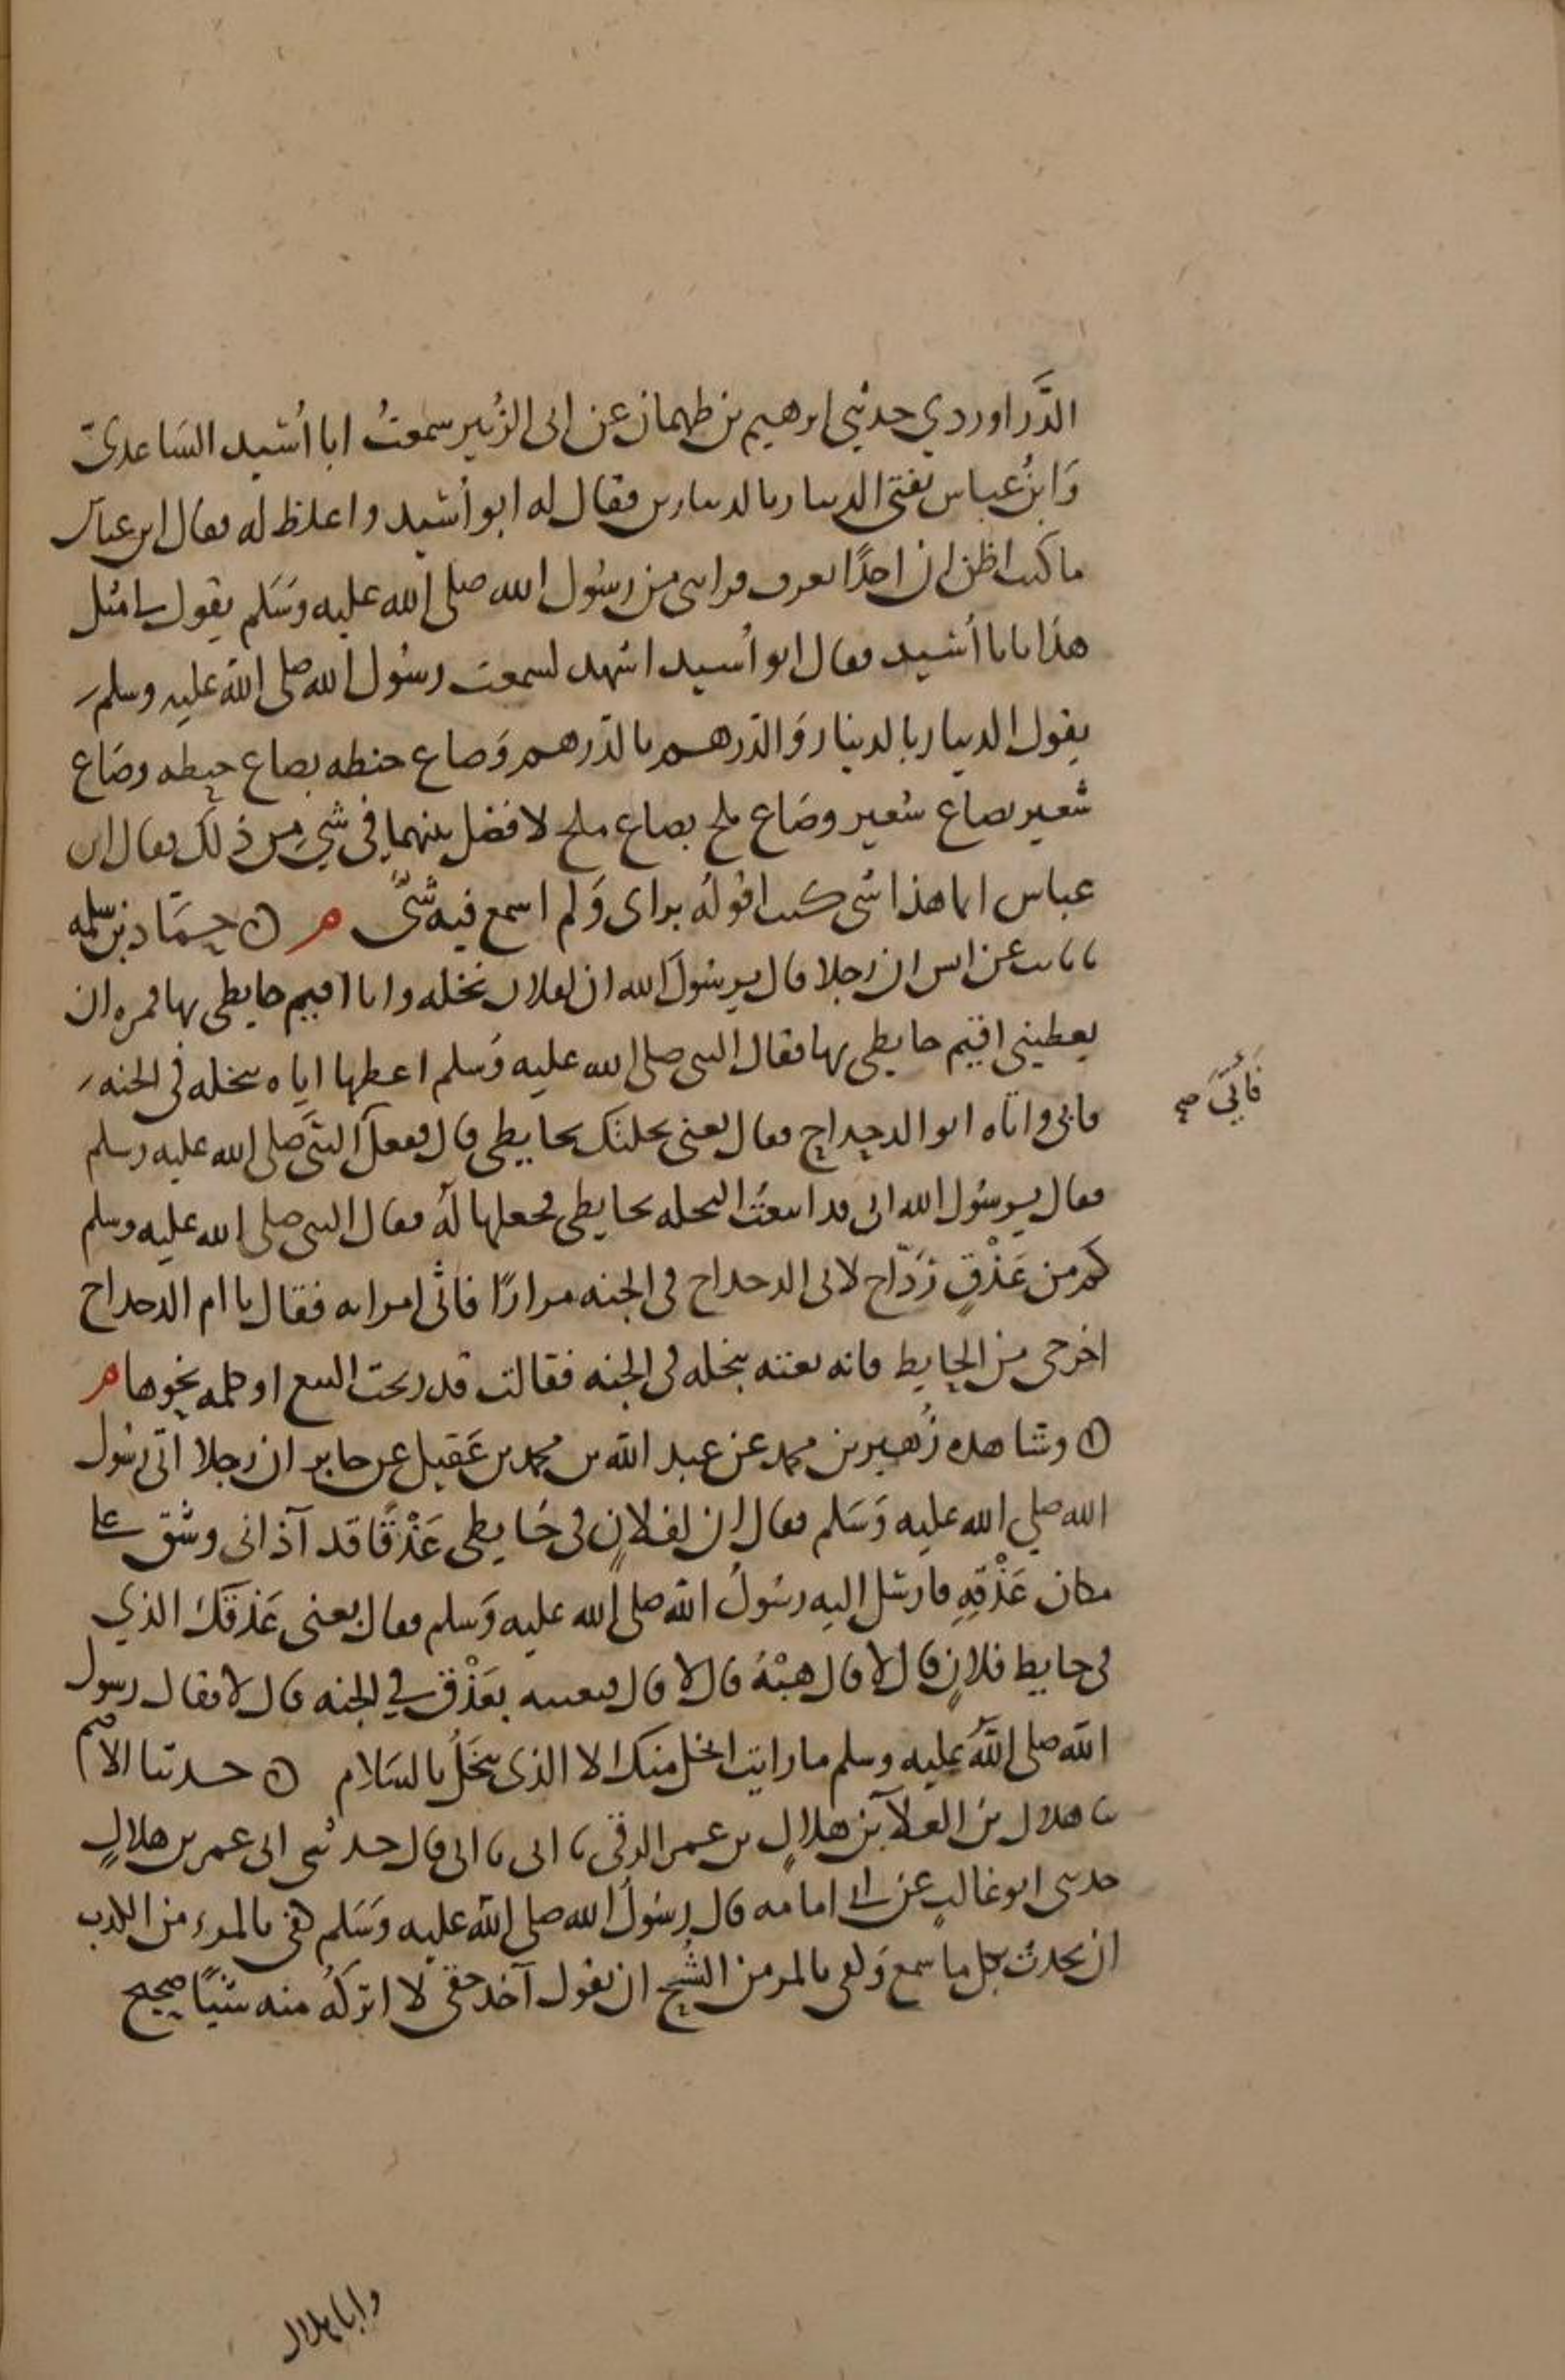 الدَّراوردي حدثني ابرهيم بن طهمان عن ابى الزُبير سمعتُ ابا أُسَيد السَاعديّ
وَابنُ عباس يفتى الدينار بالدينارين فقال له ابو أُسَيد واغلظ له فقال ابن عباس
ما كنت اظن ان احدًا يعرف قرابتى من رسُول الله صلى الله عليه وسَلم يقول لى مثل
هذا يابا أُسَيد فقال ابو أُسيد اشهد لسمعت رسُول الله صلى الله عليه وسلم
يقول الدينار بالدينار وَالدّرهم بالدّرهم وَصاع حنطه بصاع حنطه وصَاع
شعير بصاع شعير وصَاع ملح بصاع ملح لا فضل بينهما فى شي من ذلك فقال ابن
عباس انما هذا شى كنت اقولهُ براى وَلم اسمع فيه شىً م حمَّاد بن سلمه
نا ثابت عن انس ان رجلا قال يرسُولَ الله ان لفلان نخله وانا اقيم حايطى بها فمره ان
يعطينى اقيم حايطى بها فقال النبى صلى الله عليه وسلم اعطها اياه بنخله فى الجنه
فابى واتاه ابو الدحداح فقال بعنى نخلتك بحايطى قال ففعل فاتى النبَّى صلى الله عليه وسلم
فقال يرسُول الله انى قد ابتعتُ النخله بحايطى فجعلها لهُ فقال النبى صلى الله عليه وسلم
كم من عَذْقٍ رَدّاح لابى الدحداح فى الجنه مرارًا فاتى امراته فقال يا ام الدحداح
اخرجى من الحايط فانه بعته بنخله فى الجنه فقالت قد ربحت البيع او كلمه نحوها م
وشاهده زُهير بن محمد عن عبد الله بن محمد بن عَقيل عن جابر ان رجلا اتى رسُول
الله صلي الله عليه وَسَلم فقال ان لفلانٍ فى حَايطى عَذْقًا قد آذانى وشق على
مكان عَذْقِهِ فارسَل اليه رسُولُ الله صلى الله عليه وَسلم فقال بعنى عَذقَك الذي
فى حايط فلانٍ قال لا قال هبْهُ قال لا قال فبعنيه بعَذْق في الجنه قال لا فقال رسول
الله صلى اللهُ عليه وسلم ما رايت ابخل منك الا الذى يبخَلُ بالسَلام حدثنا الاصم
نا هلال بن العلآ بن هلالٍ بن عمر الرقى نا ابى نا ابى قال حدثنى ابى عمر بن هلالٍ
حدثنى ابو غالبٍ عن ابى امامه قال رسُولُ الله صلى الله عليه وسَلم كفى بالمرء من الكذب
ان يحدث بكل ما سمع وَكفى بالمر من الشُح ان يقول آخذ حقى لا اترك منه شيًا صحيح
وابا هلال